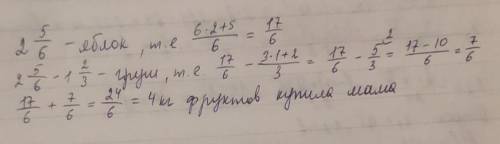 2 5/6 - яблок, т.е (6·2+5)/6 = 17/6
2 5/6 - 1 2/3 - груш, т.е. 17/6 - (3·1+2)/3 = 17/6 - 5/3 ² = (17-10)/6 = 7/6
17/6 + 7/6 = 24/6 = 4 кг фруктов купила мама